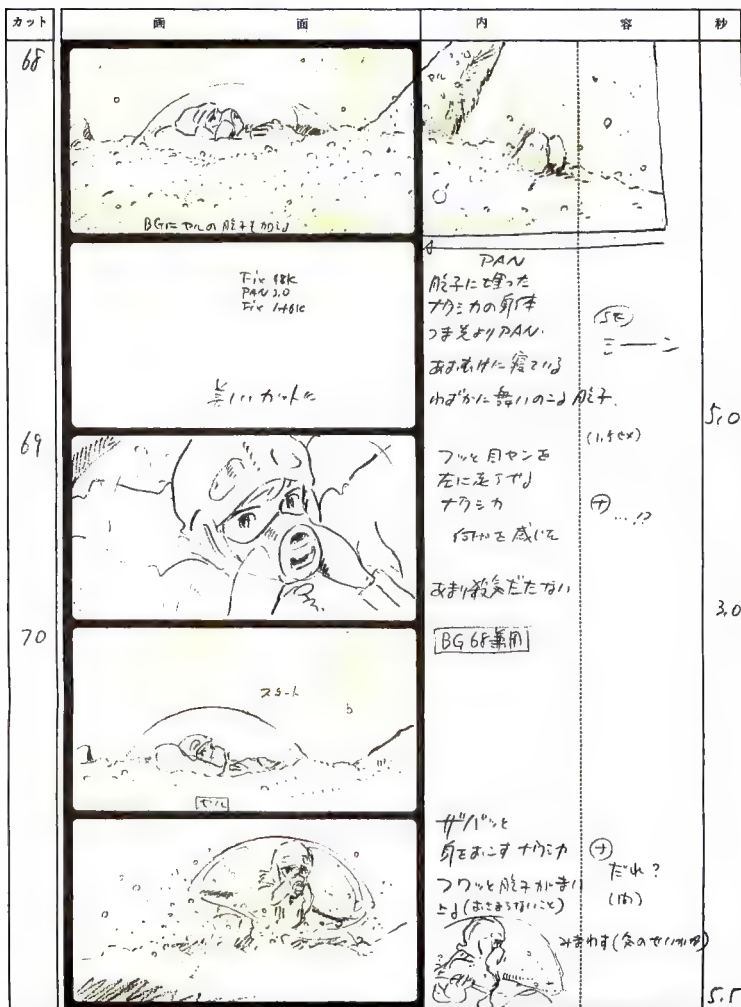 カット
画 面
内 容
秒
68
セル
BGに セルの胞子もかぶる
PAN
Fix 48K
PAN 3.0
Fix 1+6K
美しいカットに
胞子に埋った
ナウシカの身体
つま先よりPAN.
あおむけに寝ている
わずかに舞いのこる胞子.
SE
ミーーン
5.0
69
フッと目セン
左に走らせる
ナウシカ
何かを感じた
あまり殺気だたない
(1.5センメ)
ナ …!?
3.0
70
BG 68兼用
スタート
セル
ザバッと
身をおこす ナウシカ
フワッと胞子がまい
上る(おさまらないこと)
ナ
だれ?
(間)
みまわす(気のせいか)
5.5